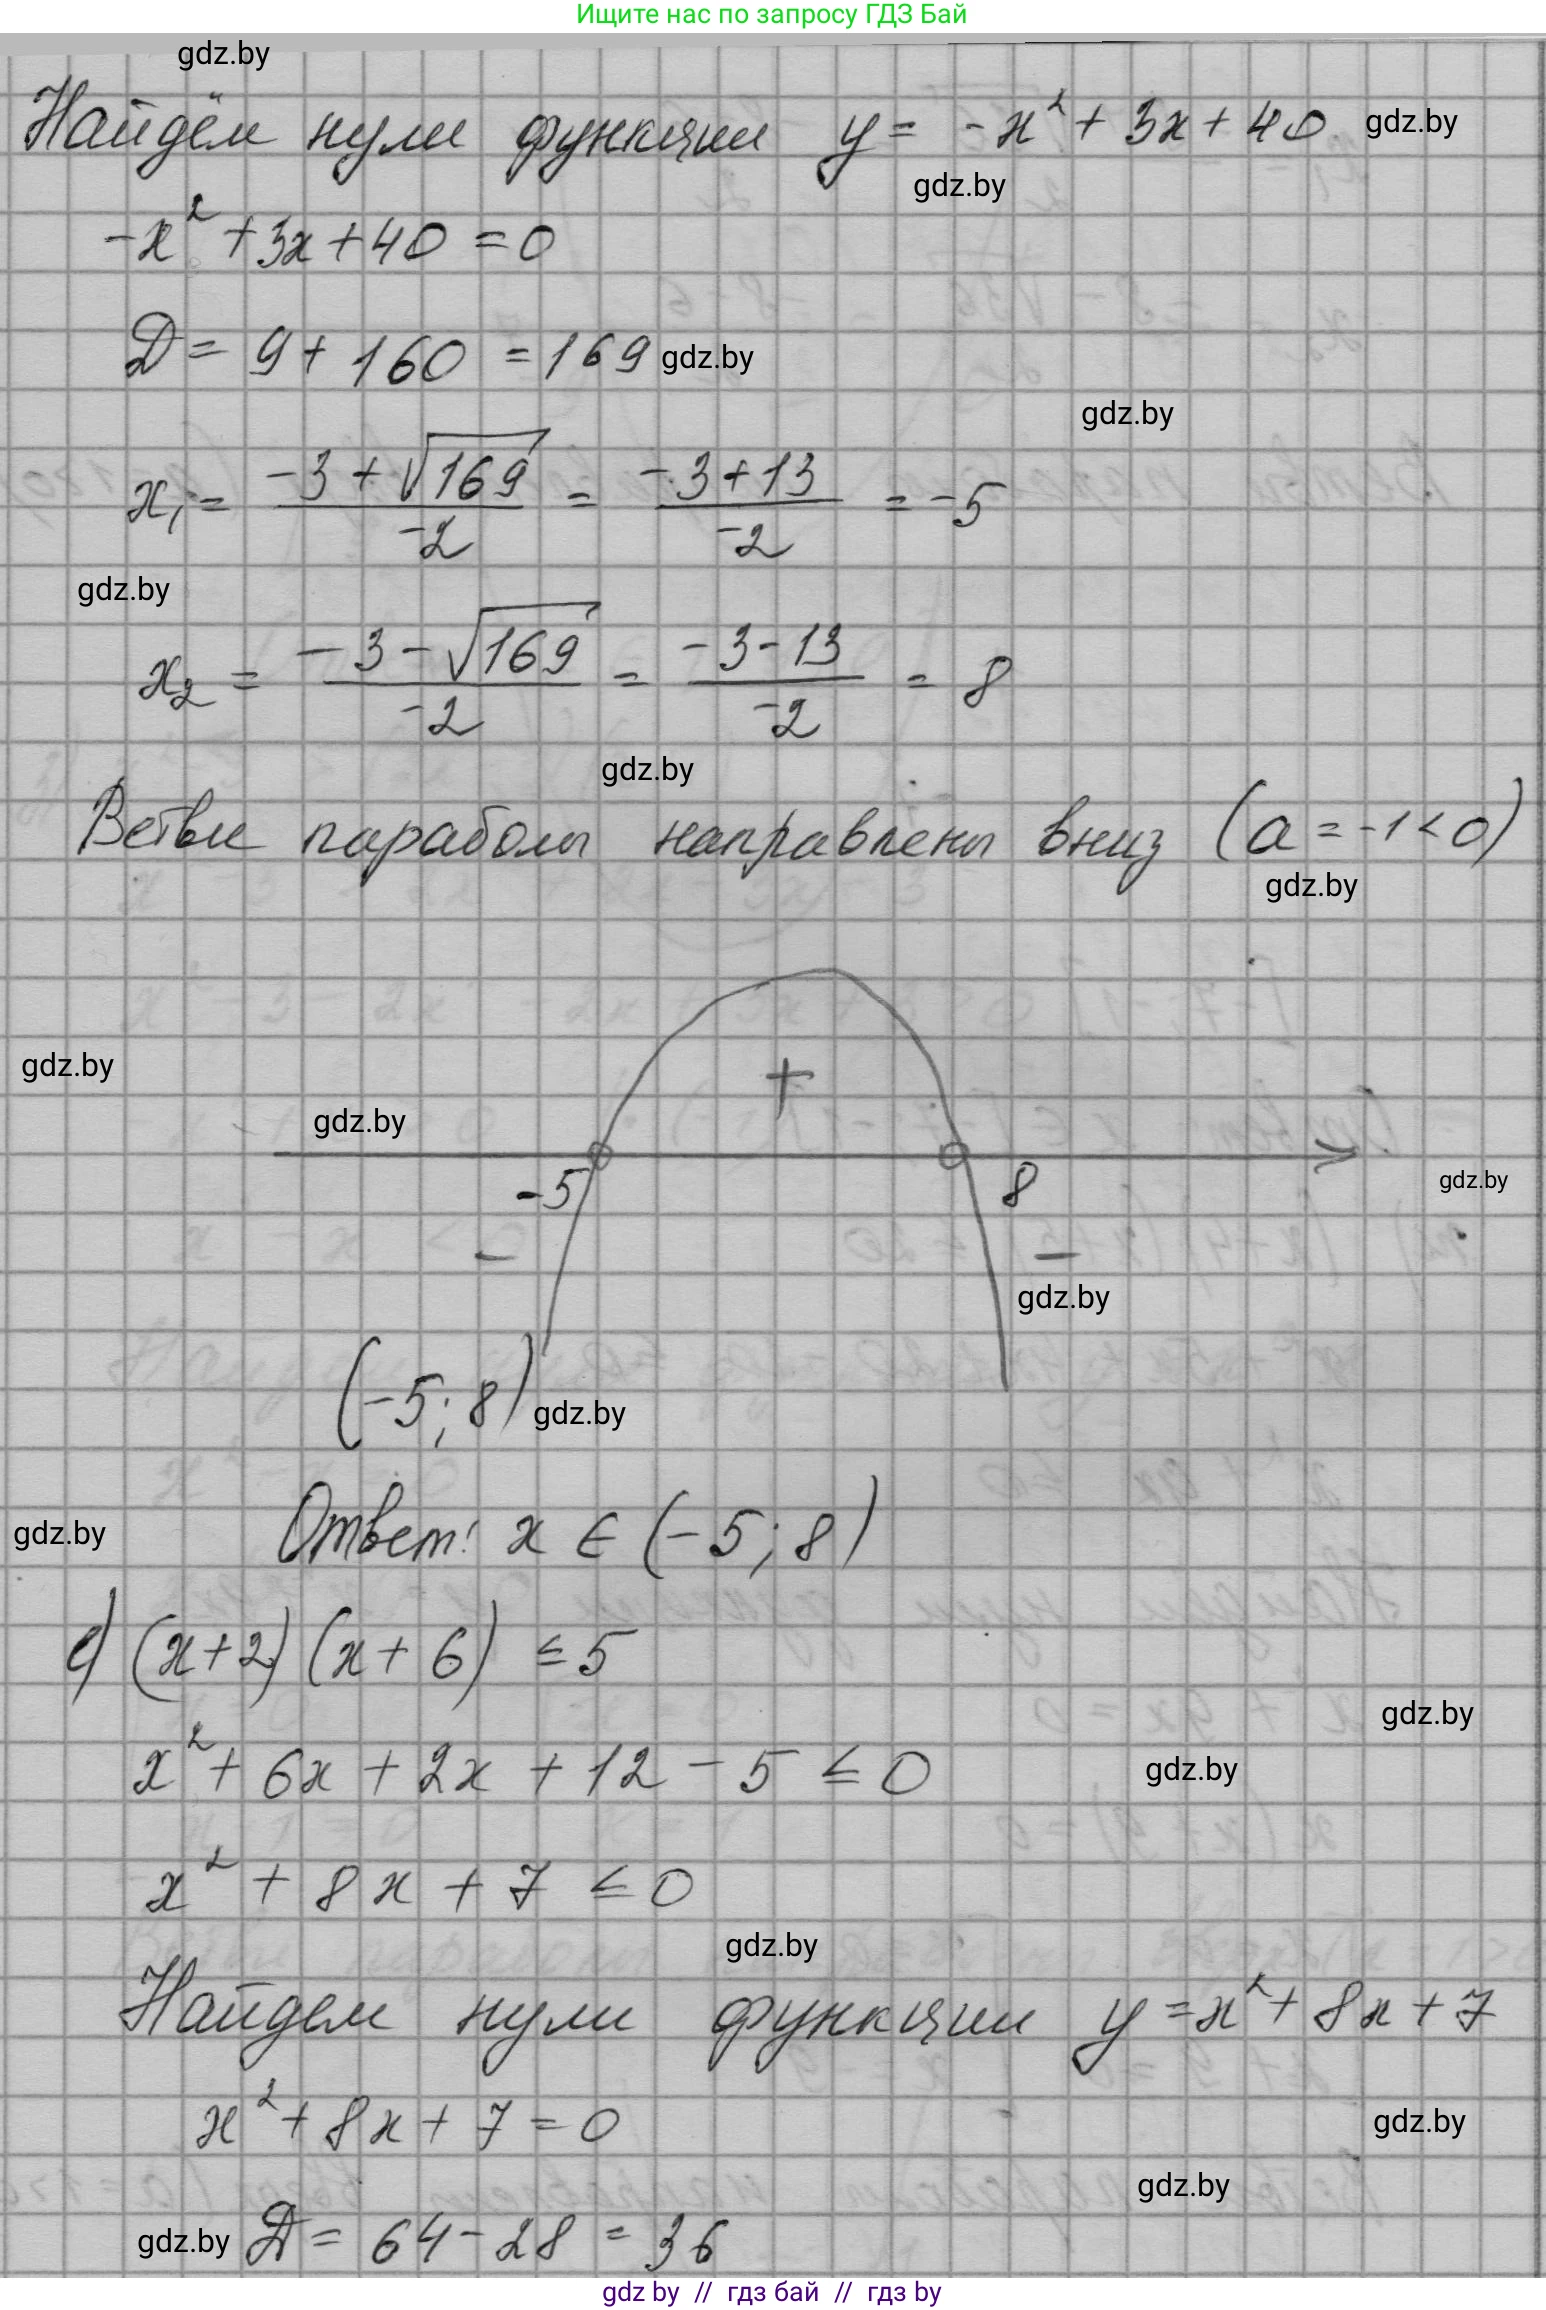 Ищите нас по запросу ГДЗ Бай
gdz.by
Найдём нули функции y = -x² + 3x + 40 gdz.by
gdz.by
-x² + 3x + 40 = 0
Д = 9 + 160 = 169 gdz.by
gdz.by
x₁ = (-3 + √169)/(-2) = (-3 + 13)/(-2) = -5
gdz.by
x₂ = (-3 - √169)/(-2) = (-3 - 13)/(-2) = 8
gdz.by
Ветви параболы направлены вниз (a = -1 < 0)
gdz.by
gdz.by
+
gdz.by
-5 8 gdz.by
- -
gdz.by
(-5; 8) gdz.by
Ответ: x ∈ (-5; 8)
gdz.by
е) (x+2) (x+6) ≤ 5
gdz.by
x² + 6x + 2x + 12 - 5 ≤ 0 gdz.by
x² + 8x + 7 ≤ 0
gdz.by
Найдем нули функции y = x² + 8x + 7
x² + 8x + 7 = 0 gdz.by
gdz.by
gdz.by Д = 64 - 28 = 36
gdz by // гдз бай // гдз by